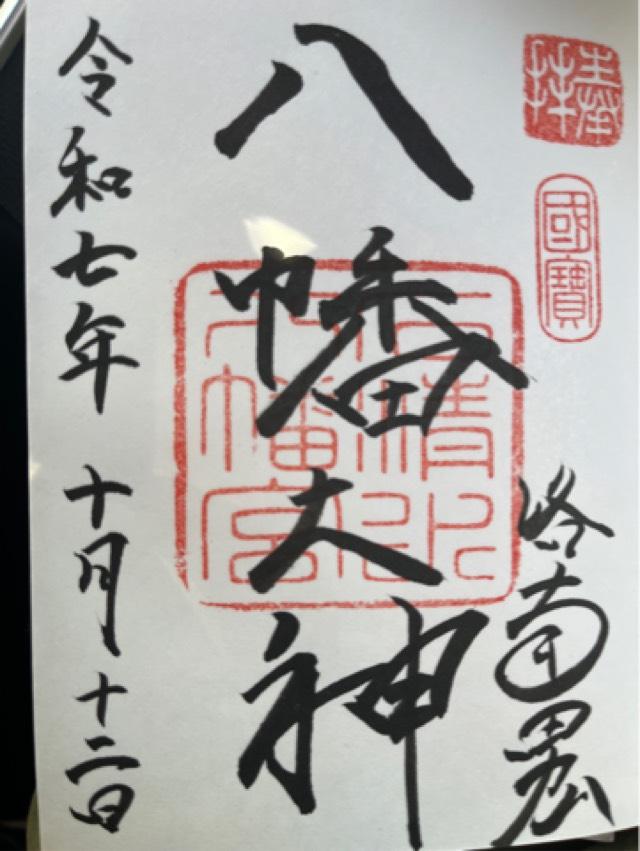 奉拝
國寶
洛南
八幡大神
石清水
八幡宮
令和七年 十月十二日